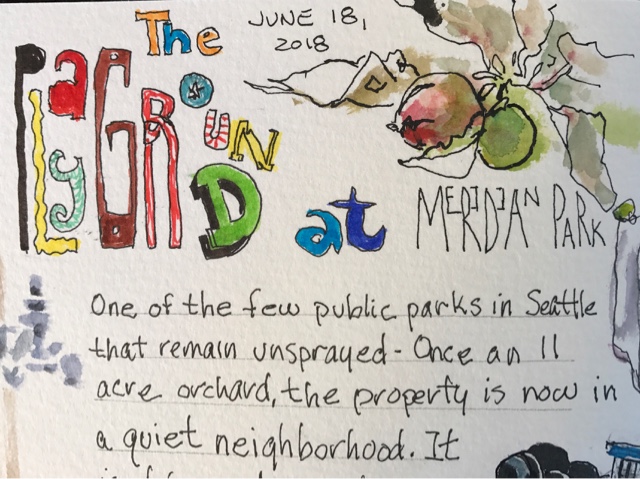 The
JUNE 18,
2018
PLAYGROUND at MERIDIAN PARK
One of the few public parks in Seattle
that remain unsprayed - Once an 11
acre orchard, the property is now in
a quiet neighborhood. It